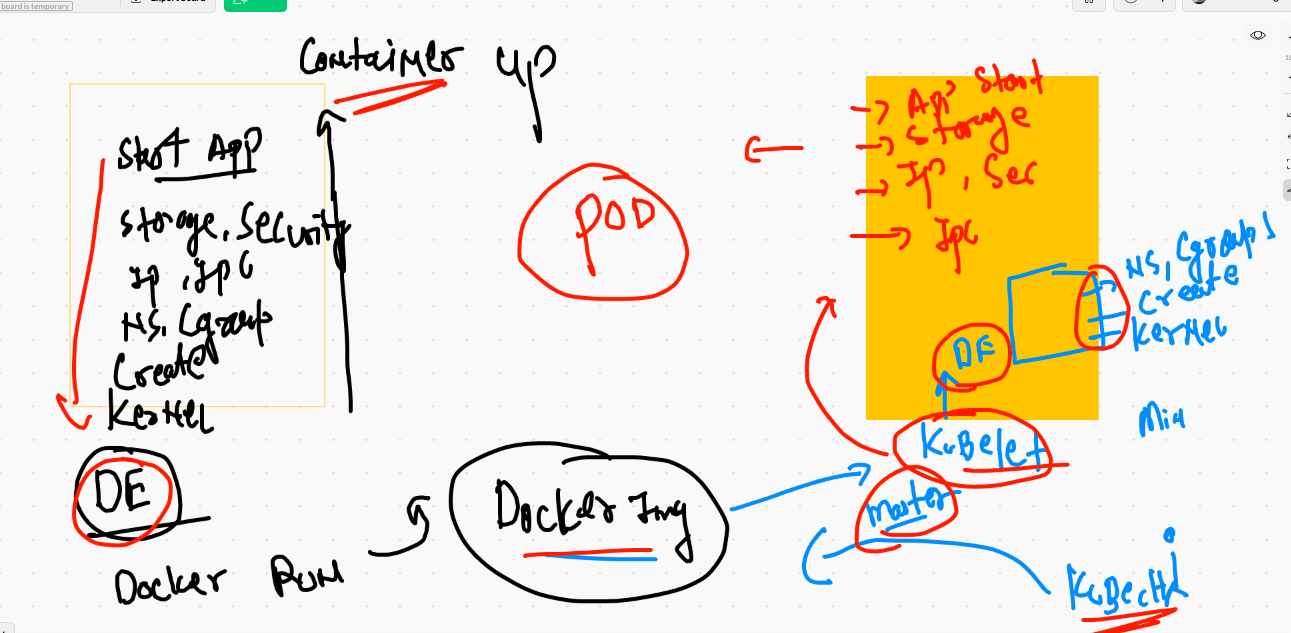 board is temporary
Container up
Start App
Storage, Security
Ip, IPC
NS, Cgroup
Create
Kernel
DE
Docker RUN
POD
Docker Img
App Start
Storage
Ip, Sec
Ipc
NS, Cgroups
Create
Kernel
DE
KuBelet
master
KuBectl